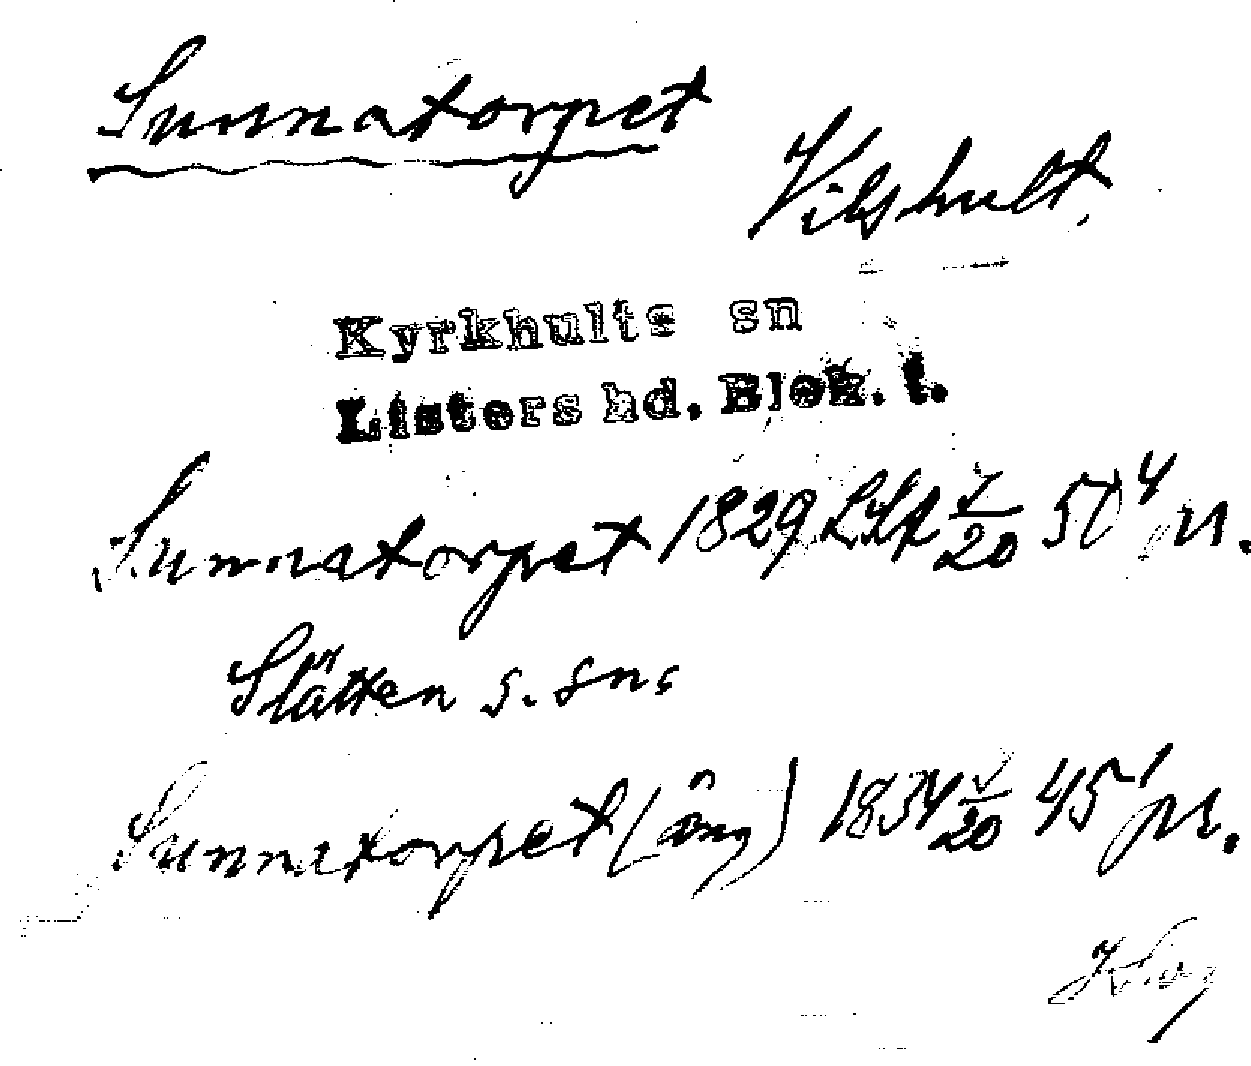 Sunnatorpet
Vilshult.
Kyrkhults sn
Listers hd. Blek. l.
Sunnatorpet 1829 LSA 7/20 50 4 pr.
Slätten s. sn.
Sunnatorpet (äng) 1834 7/20 45 1 pr.